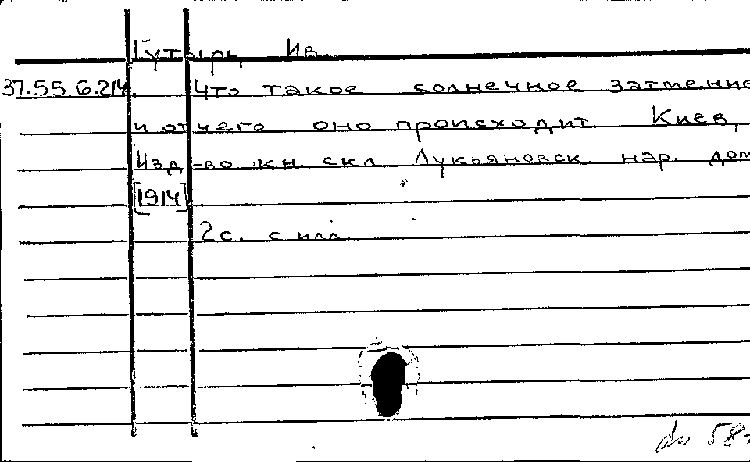 Гутырь, Ив.
37.55.6.214. Что такое солнечное затмение
и отчего оно происходит. Киев,
Изд-во кн. скл. Лукьяновск. нар. дом
[1914]
2 с. с илл.